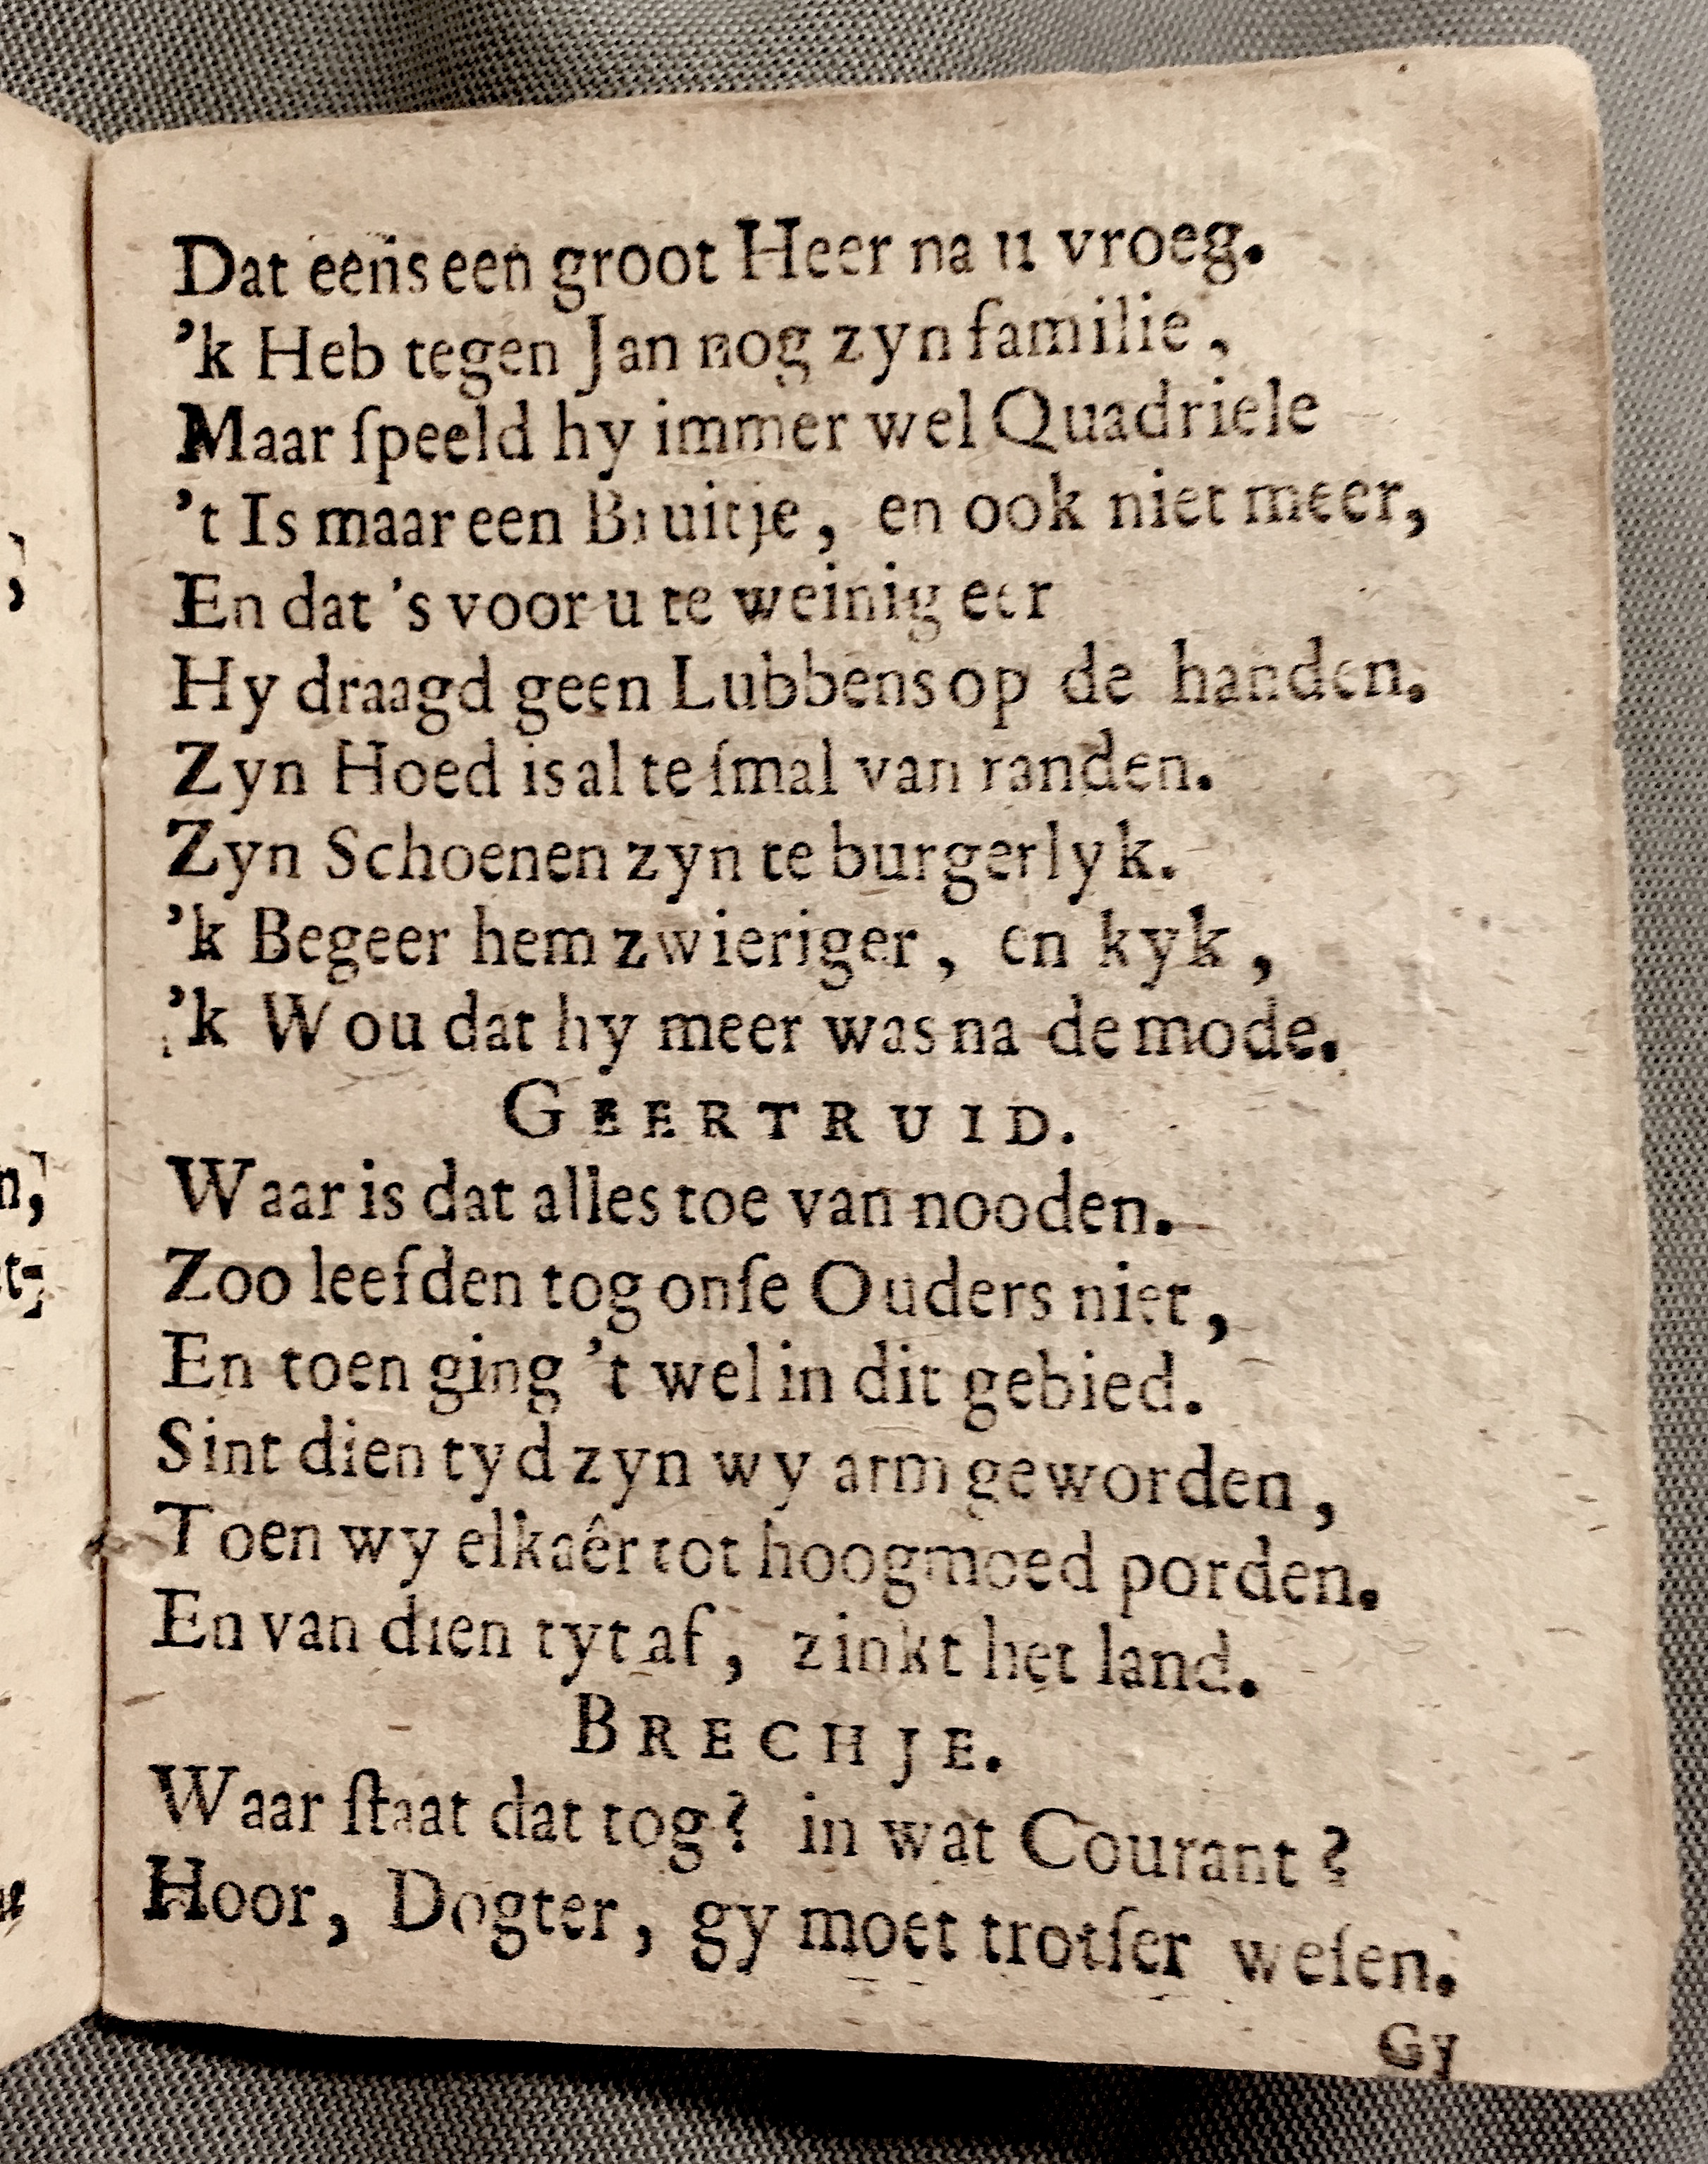 Dat eens een groot Heer na u vroeg.
’k Heb tegen Jan nog zyn familie,
Maar ſpeeld hy immer wel Quadriele
’t Is maar een Bruitje, en ook niet meer,
En dat ’s voor u te weinig eer
Hy draagd geen Lubbens op de handen.
Zyn Hoed is al te ſmal van randen.
Zyn Schoenen zyn te burgerlyk.
’k Begeer hem zwieriger, en kyk,
’k Wou dat hy meer was na de mode.
GEERTRUID.
Waar is dat alles toe van nooden.
Zoo leefden tog onſe Ouders niet,
En toen ging ’t wel in dit gebied.
Sint dien tyd zyn wy arm geworden,
Toen wy elkaêr tot hoogmoed porden.
En van dien tyt af, zinkt het land.
BRECHJE.
Waar ſtaat dat tog? in wat Courant?
Hoor, Dogter, gy moet trotſer weſen.
Gy
n,
t;